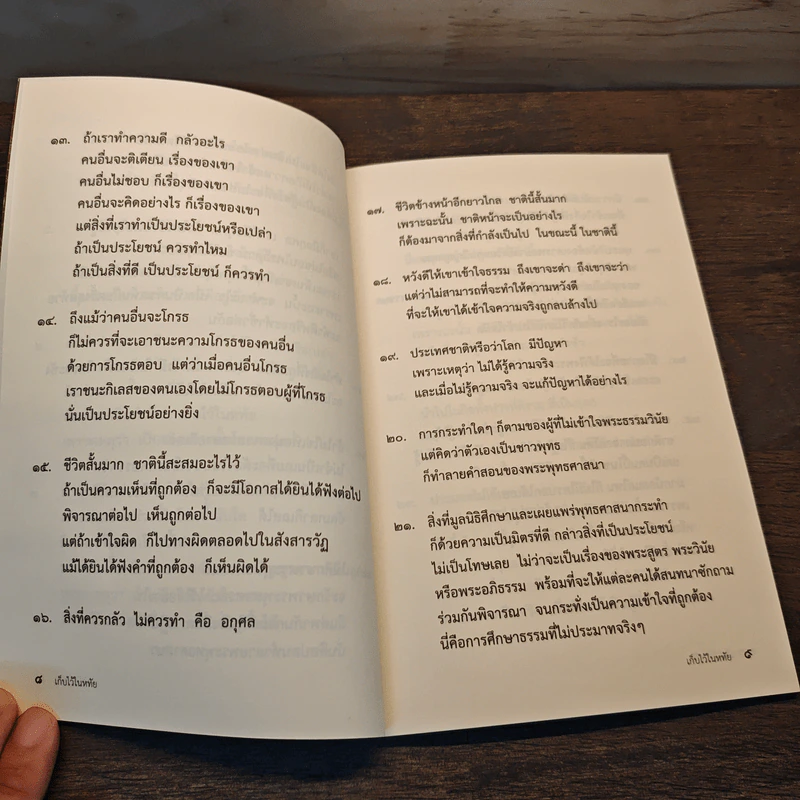 ๑๓. ถ้าเราทำความดี กลัวอะไร
คนอื่นจะติเตียน เรื่องของเขา
คนอื่นไม่ชอบ ก็เรื่องของเขา
คนอื่นจะคิดอย่างไร ก็เรื่องของเขา
แต่สิ่งที่เราทำเป็นประโยชน์หรือเปล่า
ถ้าเป็นประโยชน์ ควรทำไหม
ถ้าเป็นสิ่งที่ดี เป็นประโยชน์ ก็ควรทำ
๑๔. ถึงแม้ว่าคนอื่นจะโกรธ
ก็ไม่ควรที่จะเอาชนะความโกรธของคนอื่น
ด้วยการโกรธตอบ แต่ว่าเมื่อคนอื่นโกรธ
เราชนะกิเลสของตนเองโดยไม่โกรธตอบผู้ที่โกรธ
นั่นเป็นประโยชน์อย่างยิ่ง
๑๕. ชีวิตสั้นมาก ชาตินี้สะสมอะไรไว้
ถ้าเป็นความเห็นที่ถูกต้อง ก็จะมีโอกาสได้ยินได้ฟังต่อไป
พิจารณาต่อไป เห็นถูกต่อไป
แต่ถ้าเข้าใจผิด ก็ไปทางผิดตลอดไปในสังสารวัฏ
แม้ได้ยินได้ฟังคำที่ถูกต้อง ก็เห็นผิดได้
๑๖. สิ่งที่ควรกลัว ไม่ควรทำ คือ อกุศล
๘ เก็บไว้ในหทัย
๑๗. ชีวิตข้างหน้าอีกยาวไกล ชาตินี้สั้นมาก
เพราะฉะนั้น ชาติหน้าจะเป็นอย่างไร
ก็ต้องมาจากสิ่งที่กำลังเป็นไป ในขณะนี้ ในชาตินี้
๑๘. หวังดีให้เขาเข้าใจธรรม ถึงเขาจะด่า ถึงเขาจะว่า
แต่ว่าไม่สามารถที่จะทำให้ความหวังดี
ที่จะให้เขาได้เข้าใจความจริงถูกลบล้างไป
๑๙. ประเทศชาติหรือว่าโลก มีปัญหา
เพราะเหตุว่า ไม่ได้รู้ความจริง
และเมื่อไม่รู้ความจริง จะแก้ปัญหาได้อย่างไร
๒๐. การกระทำใดๆ ก็ตามของผู้ที่ไม่เข้าใจพระธรรมวินัย
แต่คิดว่าตัวเองเป็นชาวพุทธ
ก็ทำลายคำสอนของพระพุทธศาสนา
๒๑. สิ่งที่มูลนิธิศึกษาและเผยแพร่พุทธศาสนากระทำ
ก็ด้วยความเป็นมิตรที่ดี กล่าวสิ่งที่เป็นประโยชน์
ไม่เป็นโทษเลย ไม่ว่าจะเป็นเรื่องของพระสูตร พระวินัย
หรือพระอภิธรรม พร้อมที่จะให้แต่ละคนได้สนทนาซักถาม
ร่วมกันพิจารณา จนกระทั่งเป็นความเข้าใจที่ถูกต้อง
นี่คือการศึกษาธรรมที่ไม่ประมาทจริงๆ
เก็บไว้ในหทัย ๙